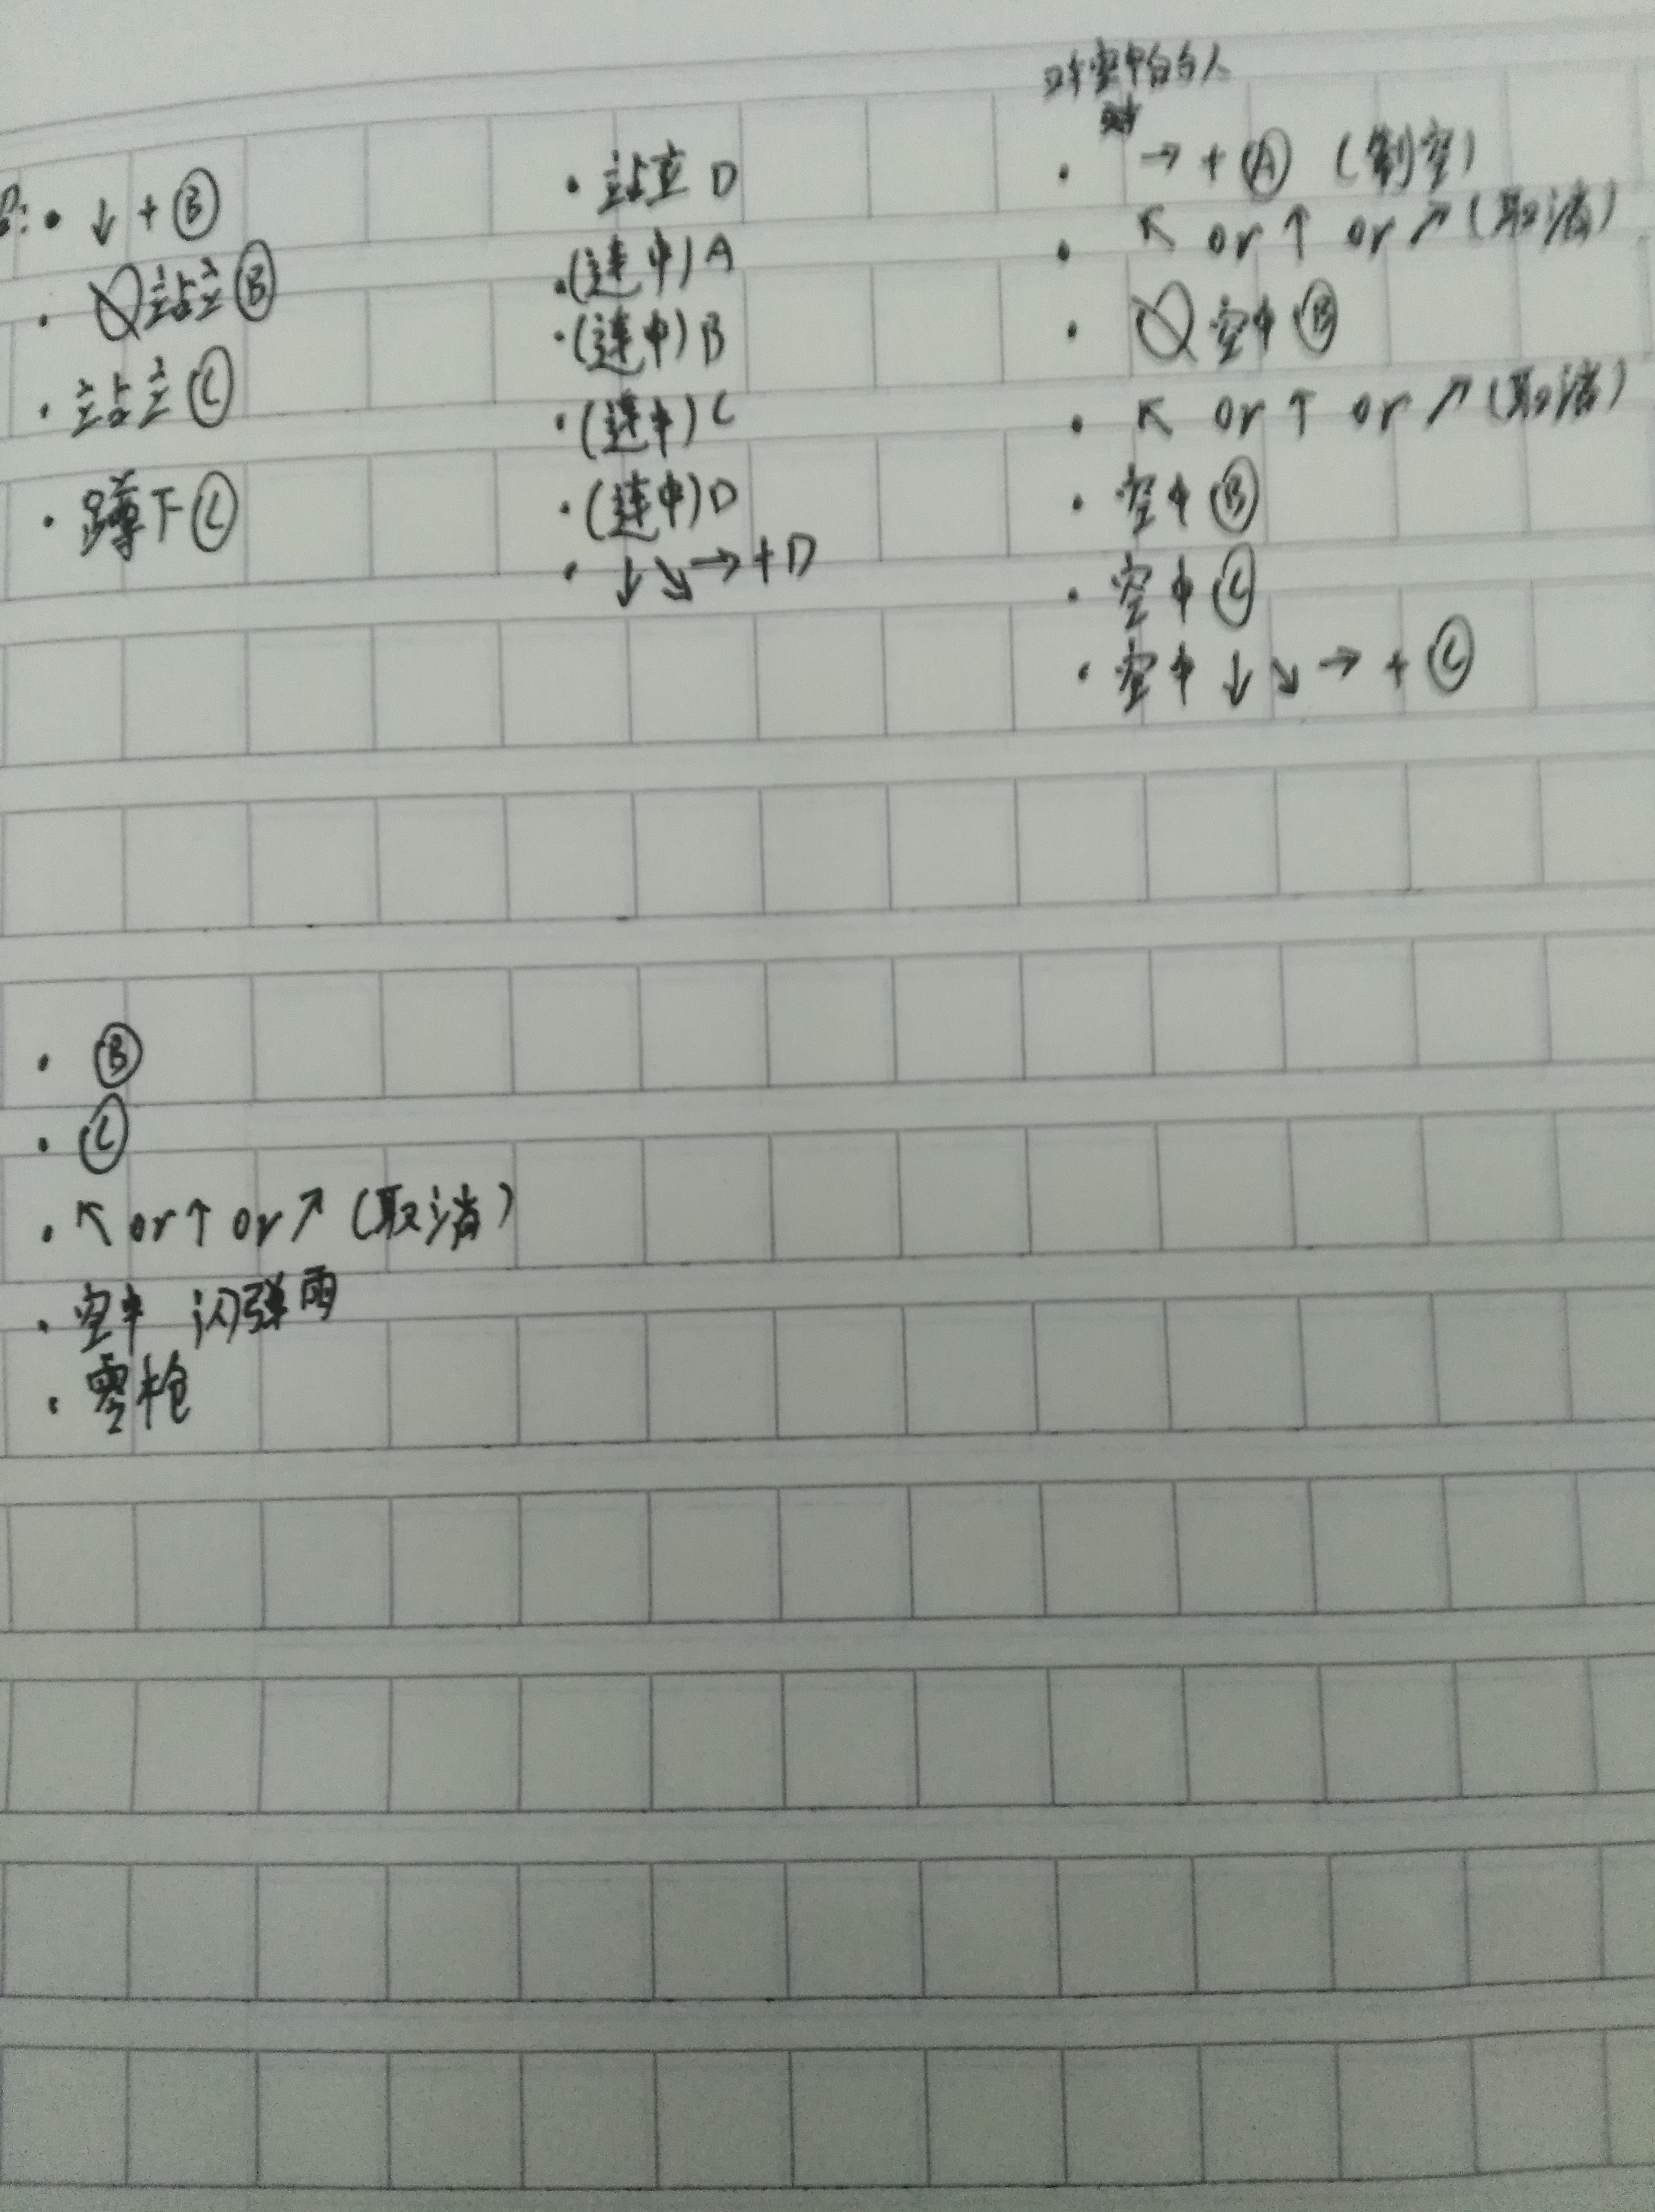 • ↓ + Ⓑ
• 站立 Ⓑ
• 站立 Ⓒ
• 蹲下 Ⓒ
• 站立 D
• (连中) A
• (连中) B
• (连中) C
• (连中) D
• ↓↘→+D
空中的人
• → + Ⓐ (制空)
• ↖ or ↑ or ↗ (取消)
• 空中 Ⓑ
• ↖ or ↑ or ↗ (取消)
• 空中 Ⓑ
• 空中 Ⓒ
• 空中 ↓ ↘ → + Ⓒ
• Ⓑ
• Ⓒ
• ↖ or ↑ or ↗ (取消)
• 空中 闪弹雨
• 零枪